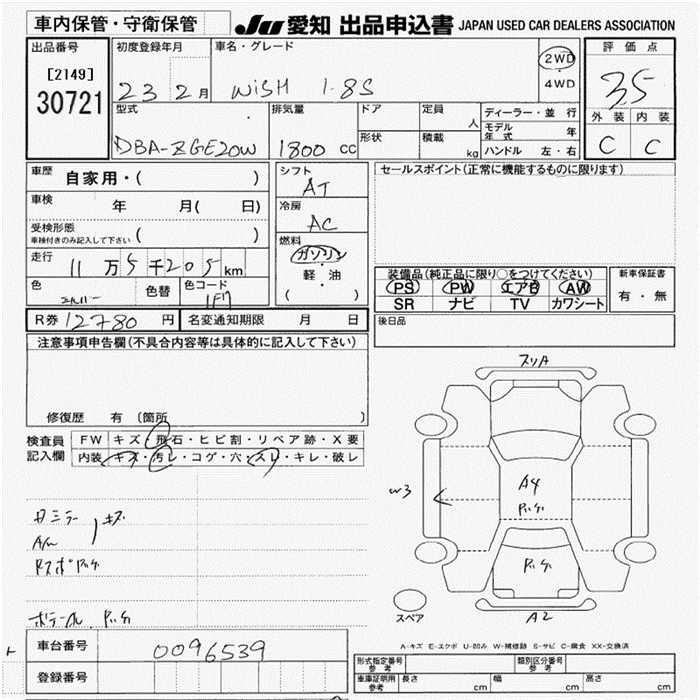 車内保管・守衛保管 JU 愛知 出品申込書 JAPAN USED CAR DEALERS ASSOCIATION
出品番号 初度登録年月 車名・グレード 2WD 評価点
[2149] 23 2月 WiSH 1.8S ・ 3.5
30721 4WD
型式 排気量 ドア 定員 人 ディーラー・並行 外装 内装
形状 積載 kg モデル年式 年 C C
DBA-ZGE20W 1800 cc ハンドル 左・右
車歴 自家用・( ) シフト AT セールスポイント(正常に機能するものに限ります)
車検 年 月( 日) 冷房 AC
受検形態
車検付きのみ記入して下さい ( ) 燃料 ガソリン
走行 11万5千205km 軽・油 装備品(純正品に限り○をつけてください) 新車保証書
色 シルバー 色替 色コード 1F7 ( ) PS PW エアB AW 有・無
SR ナビ TV カワシート
R券 12780円 名変通知期限 月 日 後日品
注意事項申告欄(不具合内容等は具体的に記入して下さい)
修復歴 有 (箇所 )
検査員 FW キズ・飛石・ヒビ割・リペア跡・X要
記入欄 内装 キズ・汚レ・コゲ・穴・スレ・キレ・破レ
スリA
W3
A4
A2
スペア
A-キズ E-エクボ U-凹み W-補修跡 S-サビ C-腐食 XX-交換済
車台番号 0096539
登録番号
形式指定番号 参考 類別区分番号 参考
車庫証明用 参考 長さ cm 幅 cm 高さ cm